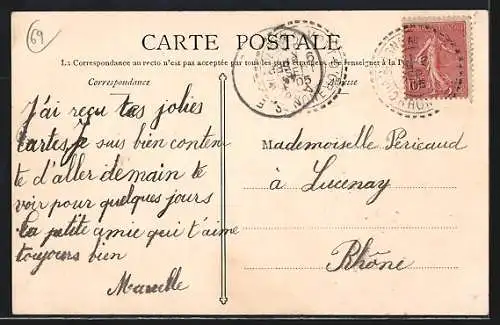 69
CARTE POSTALE
La Correspondance au recto n'est pas acceptée par tous les pays étrangers. (Se renseigner à la Poste)
Correspondance
Adresse
J'ai reçu tes jolies
cartes, Je suis bien conten
te d'aller demain te
voir pour quelques jours
ta petite amie qui t'aime
toujours bien
Marcelle
Mademoiselle Péricaud
à Lucenay
Rhône